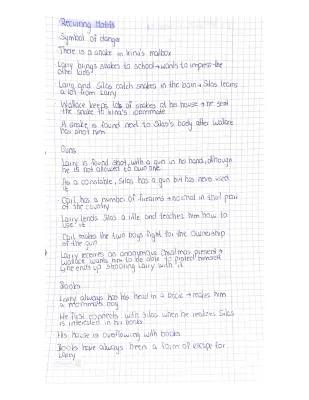 Recurring Motifs
Symbol of danger
There is a snake in Irina's mailbox
Larry brings snakes to school → wants to impress the
other kids
Larry and Silas catch snakes in the barn → Silas learns
a lot from Larry
Wallace keeps lots of snakes at his house → he sent
the snake to Irina's roommate
A snake is found next to Silas's body after Wallace
has shot him
Guns
Larry is found shot, with a gun in his hand, although
he is not allowed to own one
As a constable, Silas has a gun but has never used
it
Carl has a number of firearms → normal in that part
of the country
Larry lends Silas a rifle and teaches him how to
use it
Carl makes the two boys fight for the ownership
of the gun
Larry receives an anonymous Christmas present →
Wallace wants him to be able to protect himself
He ends up shooting Larry with it
Books
Larry always has his head in a book → makes him
a mommas boy
He first connects with Silas when he realizes Silas
is interested in his books
His house is overflowing with books
Books have always been a form of escape for
Larry